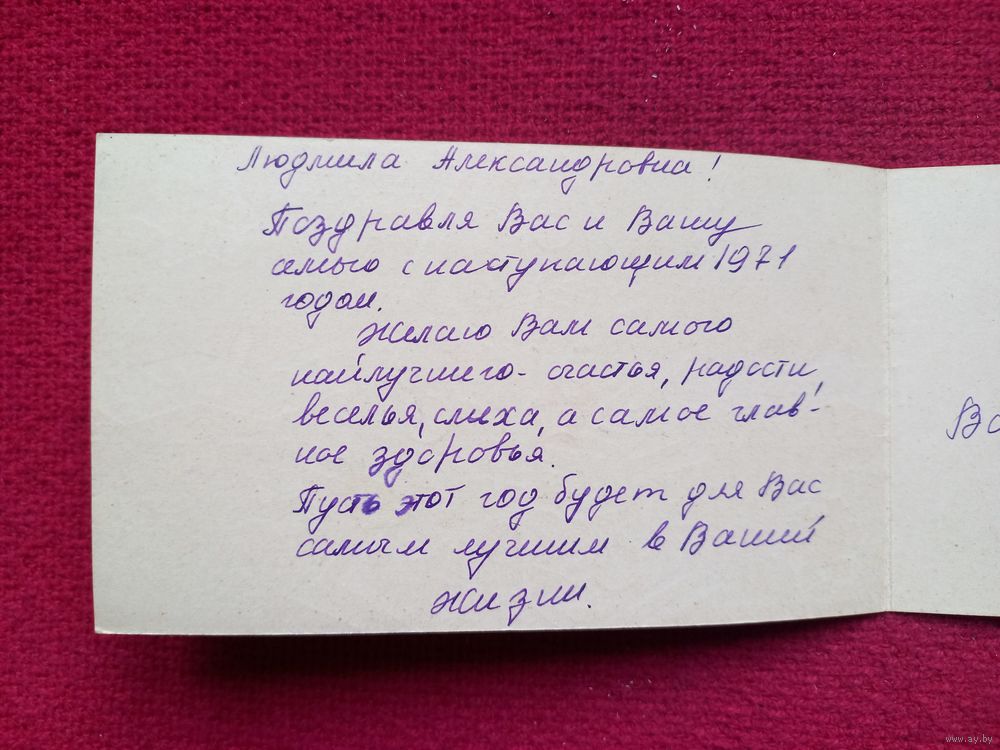 Людмила Александровна!
Поздравля Вас и Вашу
семью с наступающим 1971
годом.
Желаю Вам самого
найлучшего - счастья, радости,
веселья, смеха, а самое глав-
ное здоровья.
Пусть этот год будет для Вас
самым лучшим в Вашей
жизни.
Ва
www.ay.by